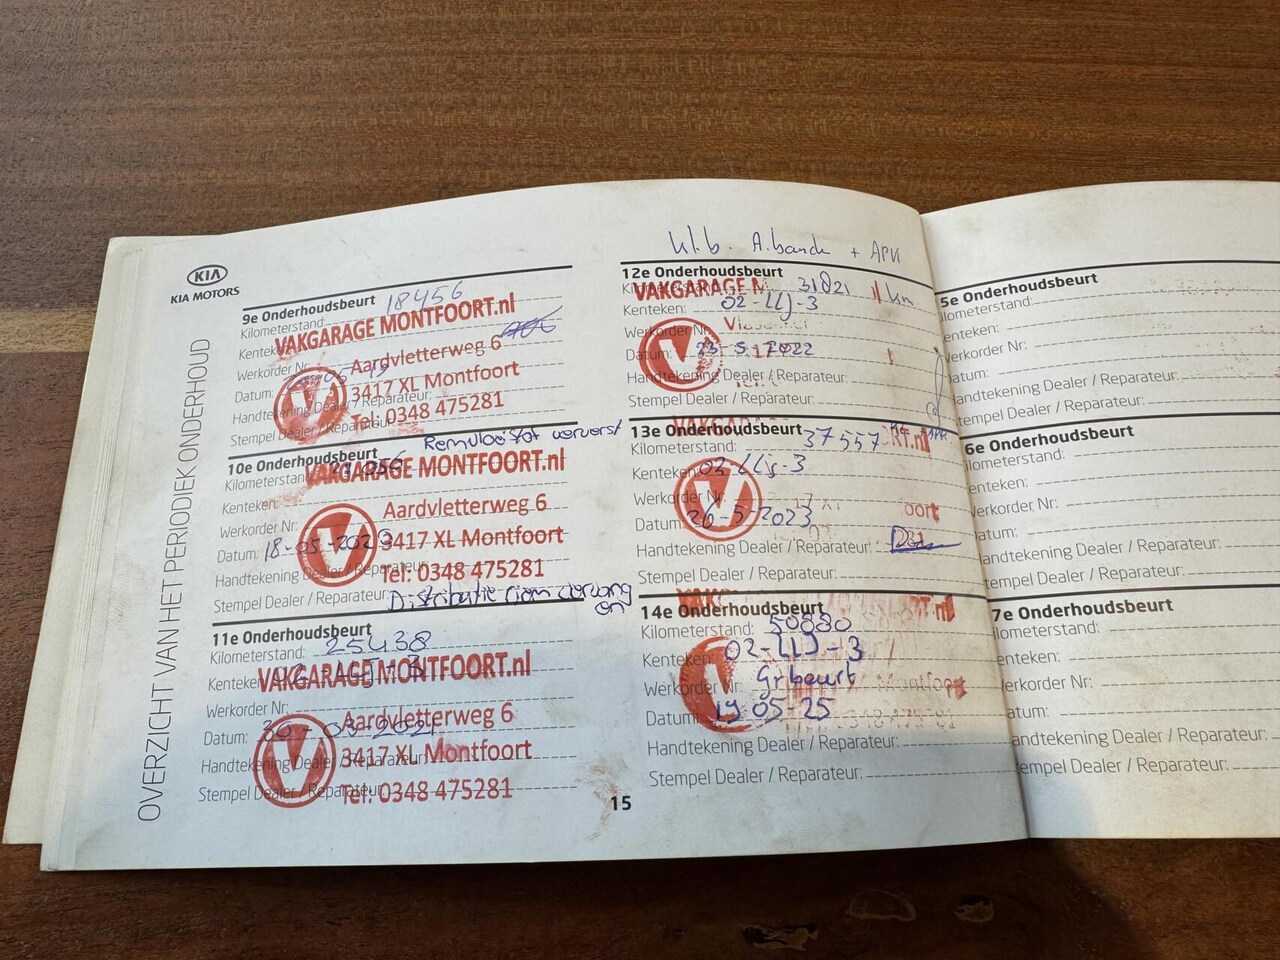 OVERZICHT VAN HET PERIODIEK ONDERHOUD
KIA
KIA MOTORS
9e Onderhoudsbeurt
Kilometerstand: 18456
VAKGARAGE MONTFOORT.nl
Kenteken:
Werkorder Nr:
Aardvletterweg 6
Datum:
3417 XL Montfoort
Handtekening Dealer / Reparateur:
Tel: 0348 475281
Stempel Dealer / Reparateur:
Remvloeistof ververst
10e Onderhoudsbeurt
Kilometerstand:
VAKGARAGE MONTFOORT.nl
Kenteken:
Aardvletterweg 6
Werkorder Nr:
Datum: 18-05-2020
3417 XL Montfoort
Handtekening Dealer / Reparateur:
Tel: 0348 475281
Stempel Dealer / Reparateur:
Distributie riem vervang
en
11e Onderhoudsbeurt
Kilometerstand: 25438
Kenteken:
VAKGARAGE MONTFOORT.nl
Werkorder Nr:
Aardvletterweg 6
Datum: 30-03-2021
3417 XL Montfoort
Handtekening Dealer / Reparateur:
Tel: 0348 475281
Stempel Dealer / Reparateur:
15
Kl.b. A.band + APK
12e Onderhoudsbeurt
Kilometerstand: 31821 km
VAKGARAGE M
Kenteken: 02-LLJ-3
Werkorder Nr:
Datum: 23-5-2022
Handtekening Dealer / Reparateur:
Stempel Dealer / Reparateur:
13e Onderhoudsbeurt
Kilometerstand: 37557
RT.nl
Kenteken: 02-LLJ-3
Werkorder Nr:
oort
Datum: 26-5-2023
Handtekening Dealer / Reparateur:
Stempel Dealer / Reparateur:
14e Onderhoudsbeurt
Kilometerstand: 50880
Kenteken: 02-LLJ-3
Werkorder Nr: Gr beurt
Montfoort
Datum: 19-05-25
Handtekening Dealer / Reparateur:
Stempel Dealer / Reparateur:
5e Onderhoudsbeurt
ilometerstand:
enteken:
erkorder Nr:
atum:
andtekening Dealer / Reparateur:
tempel Dealer / Reparateur:
6e Onderhoudsbeurt
ilometerstand:
enteken:
erkorder Nr:
atum:
andtekening Dealer / Reparateur:
tempel Dealer / Reparateur:
7e Onderhoudsbeurt
ilometerstand:
enteken:
erkorder Nr:
atum:
andtekening Dealer / Reparateur:
empel Dealer / Reparateur: